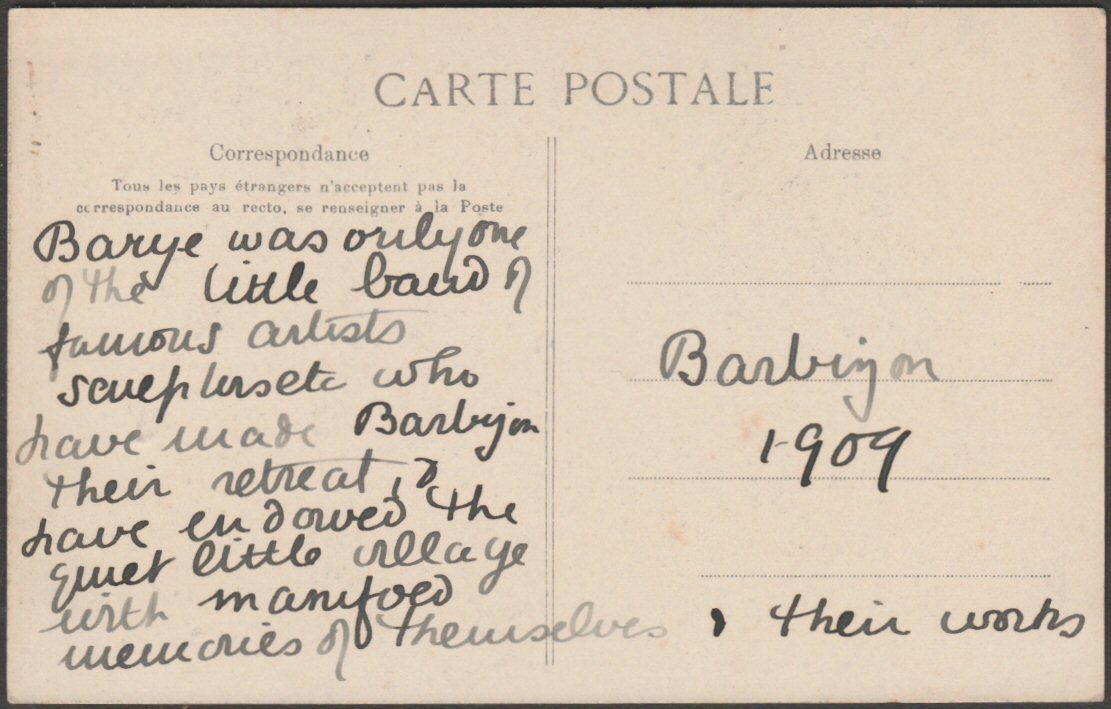 CARTE POSTALE
Correspondance
Tous les pays étrangers n'acceptent pas la
correspondance au recto, se renseigner à la Poste
Adresse
Barye was only one
of the little band of
famous artists
sculptors etc who
have made Barbizon
their retreat, &
have endowed the
quiet little village
with manifold
memories of themselves & their works
Barbizon
1909